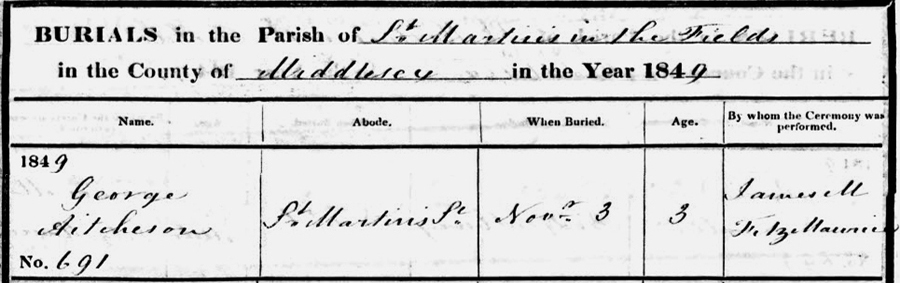 BURIALS in the Parish of St Martins in the Fields
in the County of Middlesex in the Year 1849
Name. Abode. When Buried. Age. By whom the Ceremony was performed.
1849
George Aitcheson St Martins St Novr 3 3 James M Fitz Maurice
No. 691